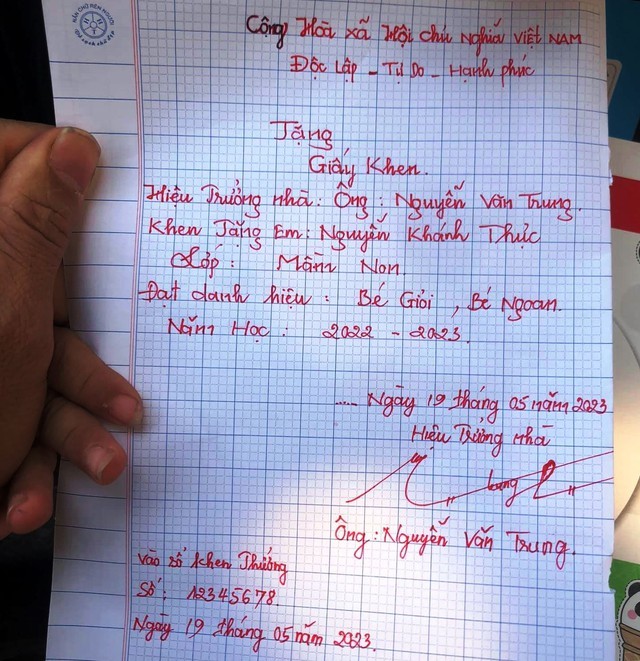 NẮN CHỮ RÈN NGƯỜI
Công Hòa xã Hội chủ nghĩa Việt NAM
Độc Lập - Tự Do - Hạnh phúc
Tặng
Giấy Khen.
Hiệu Trưởng nhà: Ông: Nguyễn Văn Trung.
Khen Tặng Em: Nguyễn Khánh Thực
Lớp: Mầm Non.
Đạt danh hiệu: Bé Giỏi, Bé Ngoan.
Năm Học: 2022 - 2023.
..... Ngày 19 tháng 05 năm 2023
Hiệu Trưởng nhà
Ông: Nguyễn Văn Trung.
Vào sổ khen Thưởng
Số: 12345678.
Ngày 19 tháng 05 năm 2023.